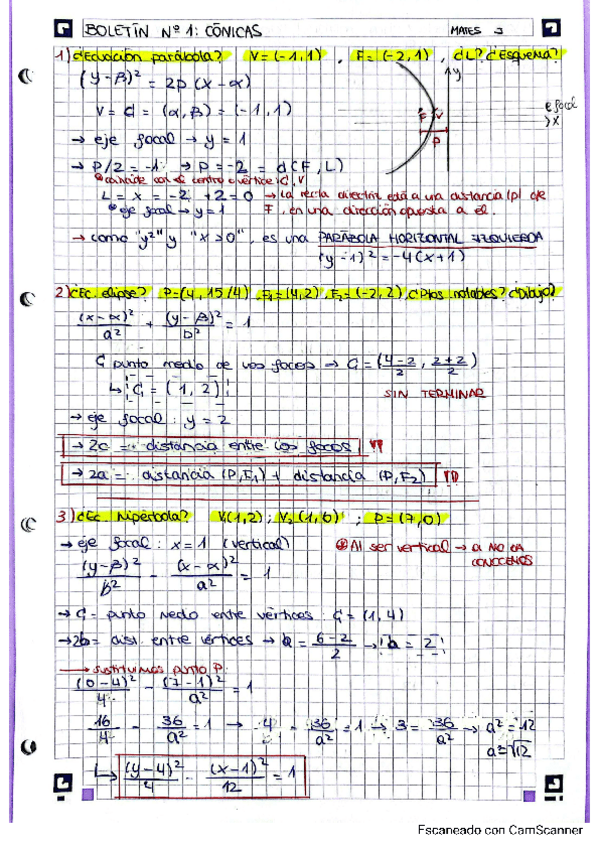 BOLETÍN Nº 1: CÓNICAS MATES 3
1) ¿Ecuación parábola? V = (-1,1) , F = (-2,1) , ¿L? ¿Esquema?
(y-β)² = 2p (x-α)
y
V = d = (α,β) = (-1,1)
F V
e focal
x
→ eje focal → y = 1
P
→ P/2 = -1 → P = -2 = d(F,L)
L = x = -2 +2 = 0 → La recta directriz está a una distancia |p| de
eje focal → y = 1 F, en una dirección opuesta a él.
→ como "y²" y "x>0", es una PARÁBOLA HORIZONTAL IZQUIERDA
(y-1)² = -4(x+1)
2) ¿Ec. elipse? P = (4, 15/4) F₁ = (4,2) , F₂ = (-2,2) , ¿Ptos notables? ¿Dibujo?
(x-α)²/a² + (y-β)²/b² = 1
C punto medio de los focos → C = (4-2/2 , 2+2/2)
↳ C = (1,2)
SIN TERMINAR
→ eje focal : y = 2
→ 2c = distancia entre los focos
→ 2a = distancia (P,F₁) + distancia (P,F₂)
3) ¿Ec. hipérbola? V(1,2) ; V₂(1,6) ; P = (7,0)
→ eje focal : x = 1 (vertical) Al ser vertical → a NO LA
CONOCEMOS
(y-β)²/b² - (x-α)²/a² = 1
→ C = punto medio entre vértices : C = (1,4)
→ 2b = dist. entre vértices → b = 6-2/2 → b = 2
→ sustituimos punto P:
(0-4)²/4 - (7-1)²/a² = 1
16/4 - 36/a² = 1 → 4 - 36/a² = 1 → 3 = 36/a² → a² = 12
a = √12
↳ (y-4)²/4 - (x-1)²/12 = 1
Escaneado con CamScanner